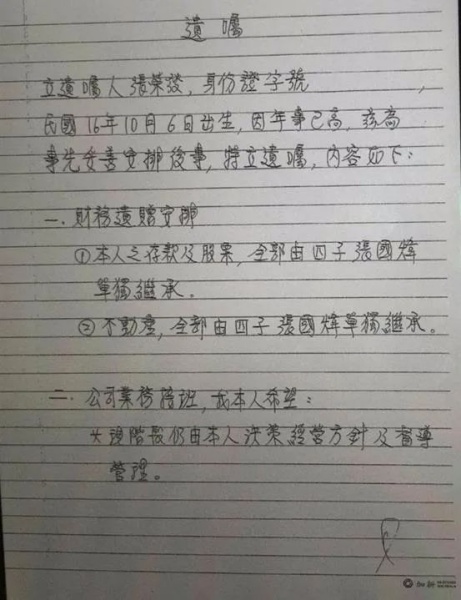 遺囑
立遺囑人張榮發，身份證字號　　　　，
民國16年10月6日出生，因年事已高，為
事先妥善安排後事，特立遺囑，內容如下：
一．財務遺贈安排
①本人之存款及股票，全部由四子張國煒
單獨繼承．
②不動產，全部由四子張國煒單獨繼承。
二．公司業務接班，我本人希望：
*現階段仍由本人決策經營方針及督導
管理。